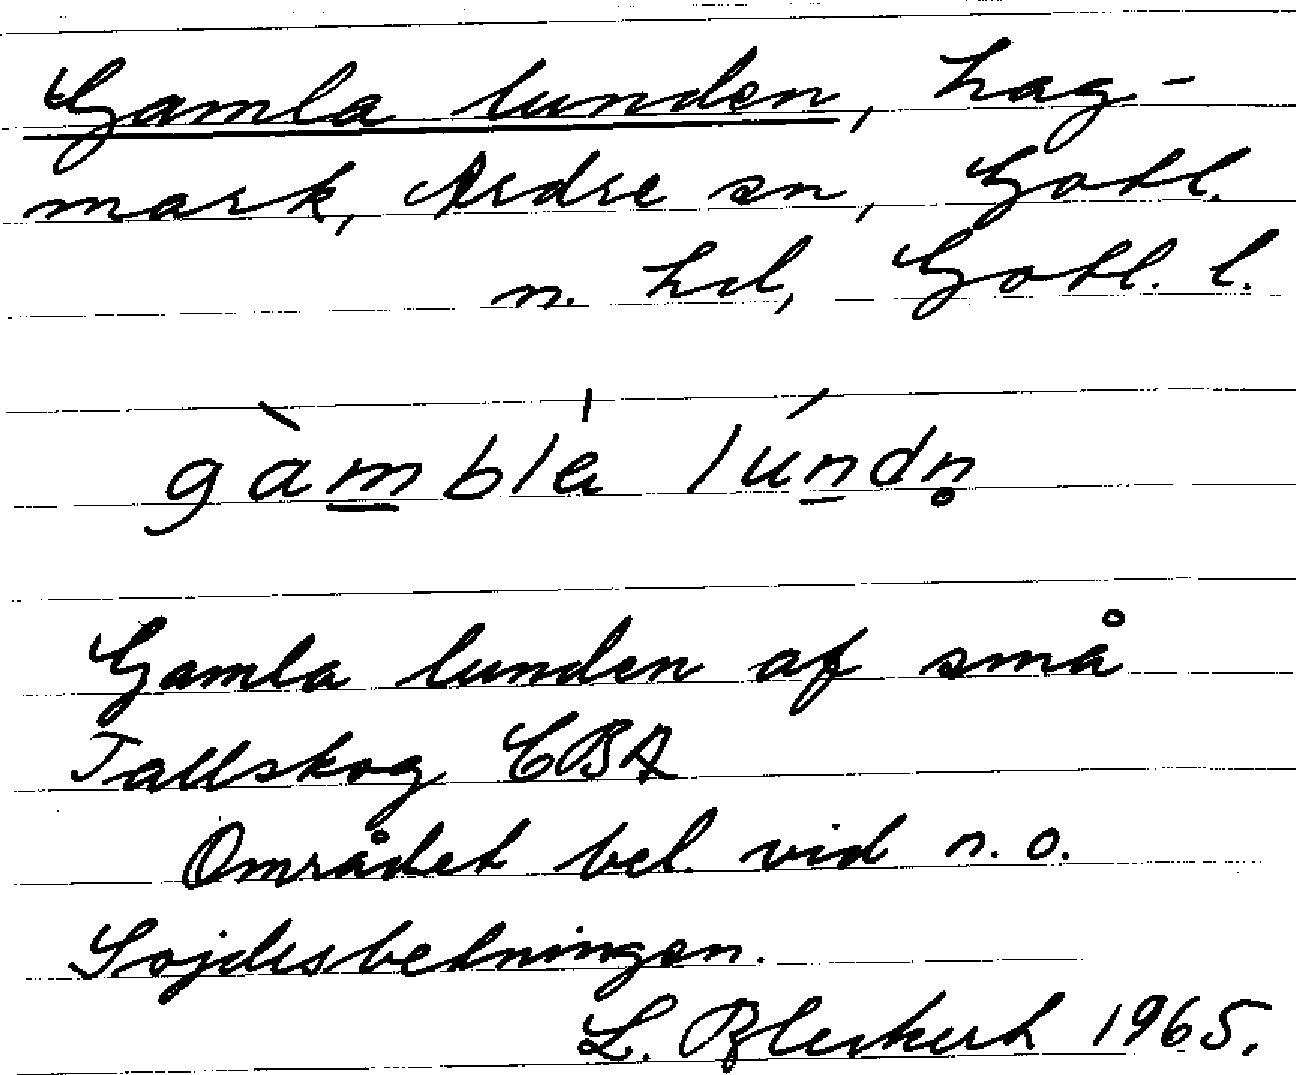 Gamla lunden, hag-
mark, Ardre sn, Gotl.
n. hd, Gotl. l.
gàmblà lúndn̥
Gamla lunden af små
Tallskog CBA
Området bel. vid n. o.
Sojdesbetningen.
L. Bleckert 1965.